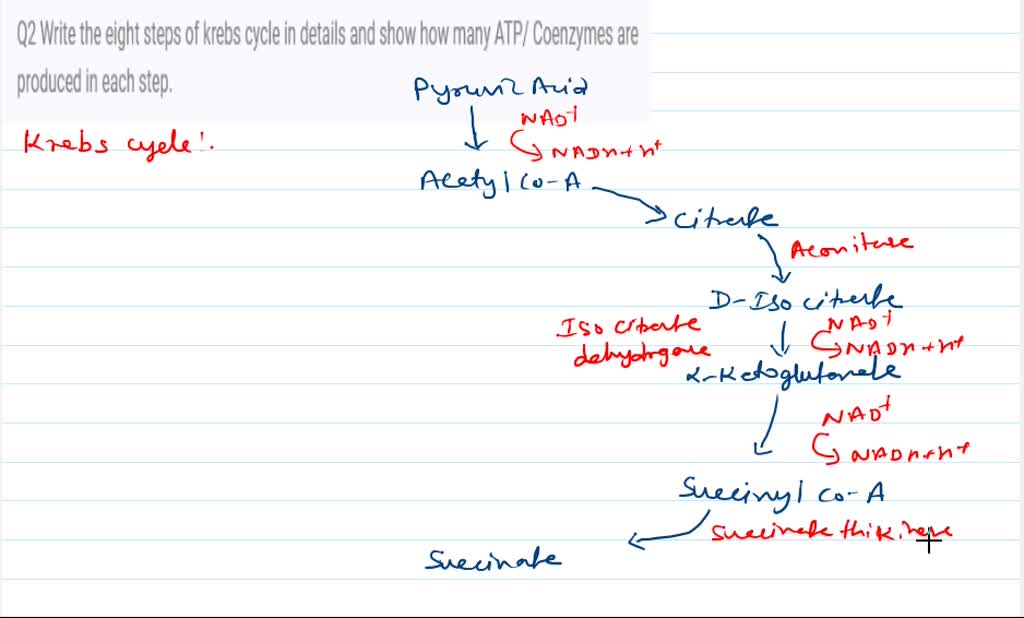 Q2 Write the eight steps of krebs cycle in details and show how many ATP/ Coenzymes are
produced in each step.
Pyruvic Acid
Krebs cycle:
NAD+
NADH+H+
Acetyl Co-A
Citrate
Aconitase
D-Iso citrate
Iso citrate
dehydrgase
NAD+
NADH+H+
α-Ketoglutarate
NAD+
NADH+H+
Succinyl Co-A
Succinate thik
Succinate